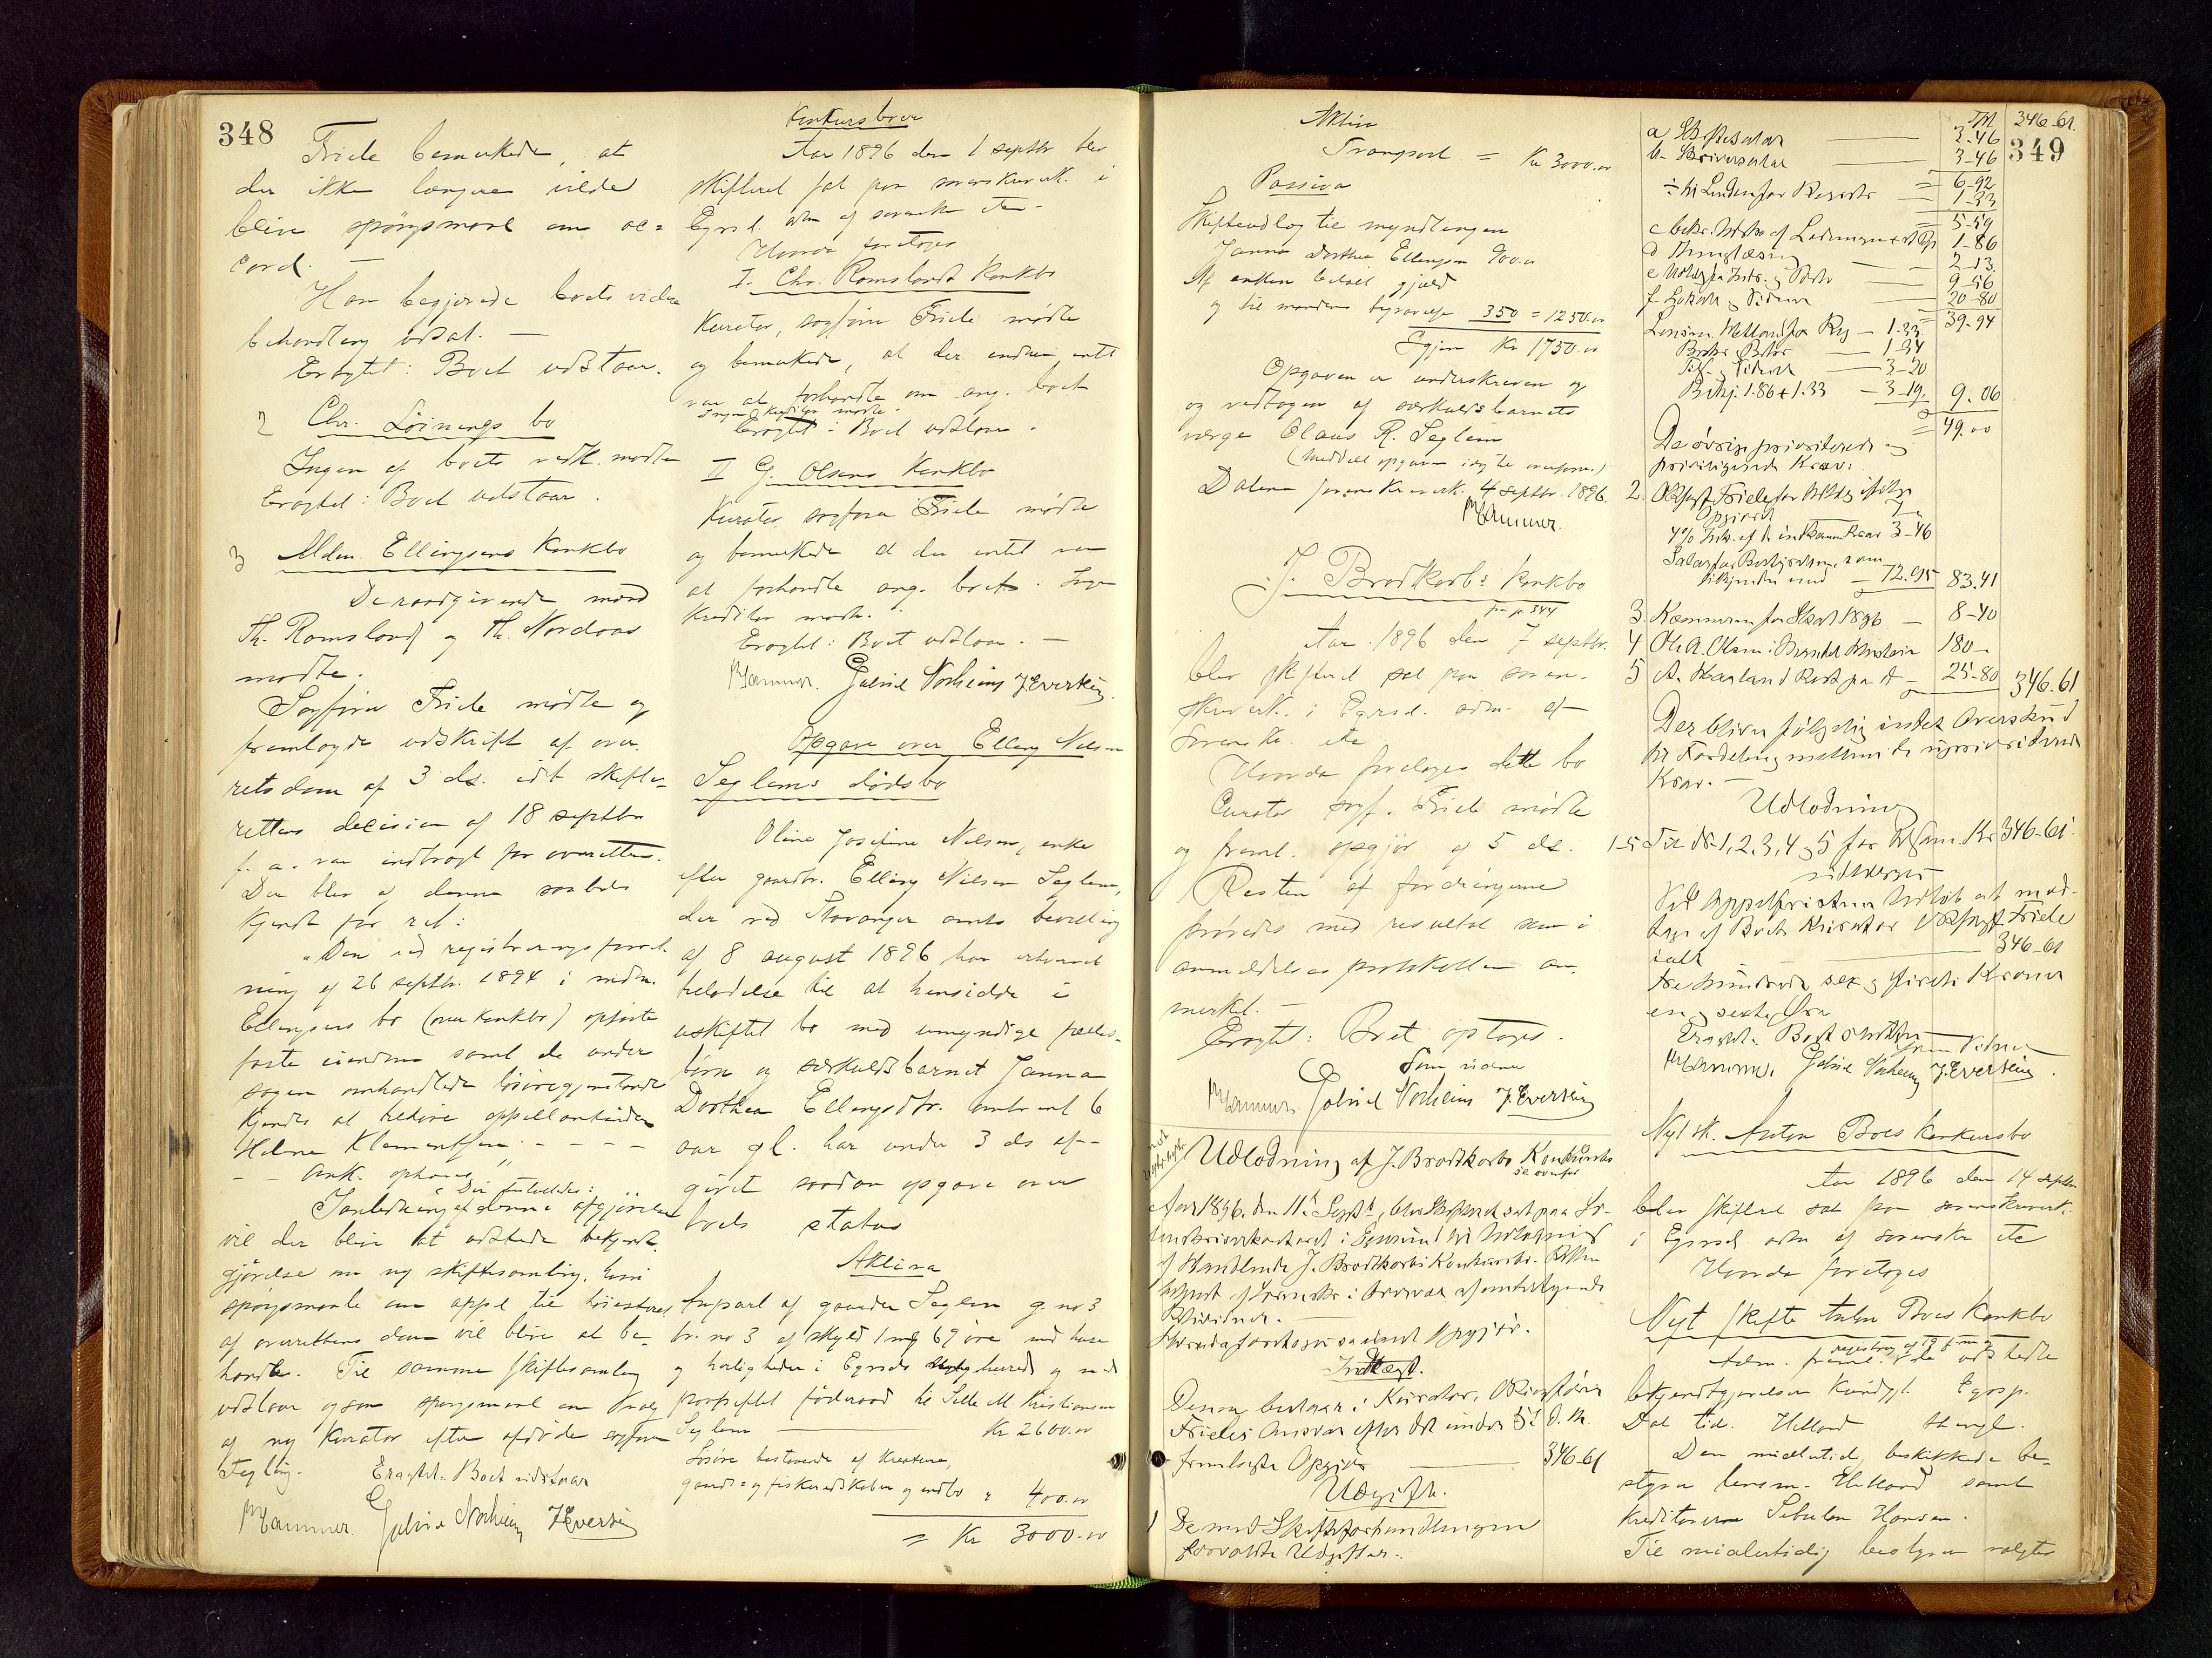 348
Friele bemærkede, at
der ikke længere vilde
blive spørgsmaal om ac=
cord. —
Han begjærede boets videre
behandling udsat. —
Eragtet: Boet udstaar.
2 Chr. Löinings bo
Ingen af boets vedk. mødte
Eragtet: Boet udstaar.
3 Aldm. Ellingsens konkbo
De raadgivende mænd
Th. Romsland og Th. Nordaas
mødte.
Sagfører Friele mødte og
fremlagde udskrift af over
retsdom af 3 ds. idt skifte=
rettens decision af 18 septbr
f. a. var indbragt for overretten.
Der blev af denne saaledes
kjendt for ret:
"Den ved registreringsforret
ning af 26 septbr. 1894 i
Ellingsens bo (nu konkbo) opførte
faste eiendom samt de under
sagen omhandlede løsøregjenstande
kjendes at tilhøre appellantinden
Helene Klementsen - - - -
- - Ark. ophæves"
Den forholdes:
I anledning af denne afgjørelse
vil der blive at udstede bekjendt-
gjørelse om ny skiftesamling, hvori
spørgsmaalet om appel til høiesteret
af overrettens dom vil blive at be-
handle. Til samme skiftesamling
udstaar ogsaa spørgsmaal om valg
af ny kurator efter afdøde sagfører
Tegling.
Eragtet: Boet udstaar
Hammer. Gabriel Norheim J. Evertsen
Konkursboer
Aar 1896 den 1 septbr blev
skifteret sat paa sorenskriverk. i
Egrsd. adm af sorenskr. etc -
Hvorda foretoges
I. Chr. Romslands konkbo
Kurator, sagfører Friele mødte
og bemærkede, at der endnu intet
var at forhandle om ang. boet
Ingen kreditor mødte.
Eragtet: Boet udstaar.
II G. Olsens konkbo
Kurator sagfører Friele mødte
og bemærkede at der intet var
at forhandle ang. boet. Ingen
kreditor mødte.
Eragtet: Boet udstaar. —
Hammer. Gabriel Norheim J. Evertsen
Opgave over Elling Nilsen
Seglems dødsbo
Oline Josefine Nilsen, enke
efter gaardbr. Elling Nilsen Seglem,
der ved Stavanger amts bevilling
af 8 august 1896 har erhvervet
tilladelse til at hensidde i
uskiftet bo med umyndige fælles-
børn og særkuldsbarnet Janna
Dorthea Ellingsdtr. omtrent 6
aar gl. har under 3 ds af-
givet saadan opgave over
boets status
Aktiva
Anpart af gaarden Seglem g. no 3
br. no 3 af skyld 1 mk 69 øre med huse
og herligheder i Egrsds herred og med
paaheftet føderaad til Sille M. Kristiansen
Seglem — Kr 2600.00
Løsøre bestaaende af kreaturer,
gaards- og fiskeredskaber og indbo " 400.00
= Kr 3000.00
Aktiva
Transport = Kr 3000.00
Passiva
Skifteudlæg til myndlingen
Janna Dorthea Ellingsen 900.00
Af enken betalt gjæld
og til mandens begravelse 350 = 1250.00
Igjen Kr 1750.00
Opgaven er underskreven og
og vedtagen af særkuldsbarnets
værge Claus R. Seglem
(Meddelt opgaven idag til overform.)
Dalene sorenskriverk. 4 septbr. 1896.
Hammer.
J. Brodkorbs konkbo
fra p. 344
Aar 1896 den 7 septbr.
blev skifteret sat paa soren-
skriverk. i Egrsd. adm. af
sorenskr. etc
Hvorda foretoges dette bo
Curator sagf. Friele mødte
og freml. opgjør af 5 ds.
Resten af fordringerne
prøvedes med resultat som i
anmeldelsesprotokollen an-
merket. —
Eragtet: Boet optages.
Som vidner
Hammer. Gabriel Norheim J. Evertsen
Udlodning af J. Brodkorbs Konkursbo
se ovenfor
Aar 1896. den 11te Septbr, blev Skifteret sat paa So-
renskriverkontoret i Egersund til Udlodning
af Handlende J. Brodkorbs Konkursbo. Retten
betjent af Sorenskr. i Overvær af undertegnede
Retsvidner. —
Hvorda foretoges saadant Opgjør.
Indtægt.
Denne bestaar i Kurator, Overretssagfører
Frieles Ansvar efter det under 5te d. M.
fremlagte Opgjør — 346-61
Udgift.
1 De med Skifteforhandlingen
forvoldte Udgifter:
346-61.
349
a Skiftesalær — 3-46
b. Skriversalær — 3-46
= 6-92
÷ til Lensm for Registr = 1-33
= 5-59
c bekr. Udskr. af Ladningen + St P. 1-86
d Thinglæsn — 2-13.
e Udlæg for Indr. og Porto — 9-56
f Lokale og Vidner — 20-80
= 39-94
Lensm. Hetland for Reg — 1-33
Porto — 1-34
— 3-20
Betj. 1.86+1.33 — 3-19. 9.06
= 49.00
De øvrige prioriterede og
privilegerede Krav:
2. ORsagf. Friele for Udlæg ifølge
Opgjør 7 "
4% Indr. af de indkomne Krav 3-46
Salær for Bestyrelsen, som
tilkjendes med — 72.95 83.41
3. Kommunen for Skat 1896 — 8-40
4 Ole A. Olsen i — 180-
5 A. Haaland Rest paa — 25-80 346.61
Der bliver følgelig intet Overskud
til Fordeling mellem de uprioriterede
Krav. —
Udlodning
1-5 Til No 1, 2, 3, 4 og 5 for Krav. Kr 346-61.
Ved Appelfristens Udløb at mod-
tage af Boets Kurator ORsagf. Friele
ialt — 346-61
tre hundrede sex og firti Kroner
en og sexti Øre
Eragtet: Boet sluttet
Som Vidner
Hammer. Gabriel Norheim J. Evertsen.
Nyt sk. Anton Boes konkursbo
Aar 1896 den 14 septbr
blev skifteret sat paa sorenskriverk.
i Egersd. adm af sorenskr. etc
Hvorda foretoges
Nyt skifte Anton Boes konkbo
registrering af 19 f. m og
Adm. freml. de udstedte
bekjendtgjørelser Kundgt. Egrsp.
Dal tid. Hetland
Den midlertidig beskikkede be-
styrer lensm. Hetland samt
kreditorerne Sebulon Hansen.
Til midlertidig bestyrer valgtes